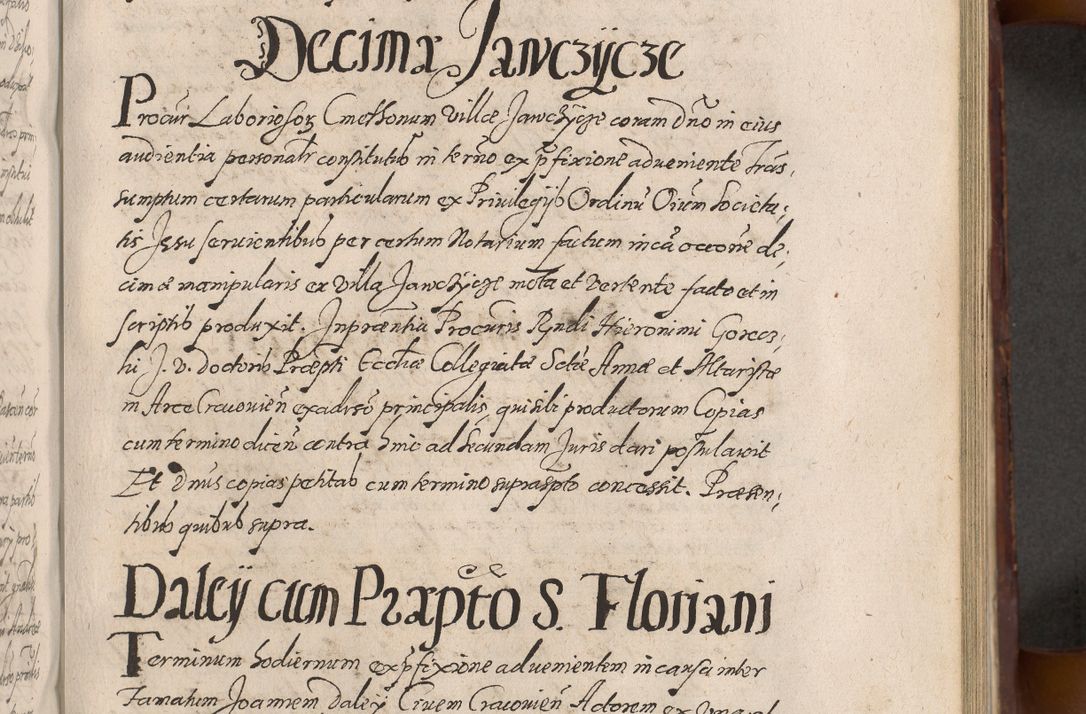 Decima Jawczÿcze
Procúr Laboriosorꝫ Cmethonum villæ Jawczÿcze coram dño in eius
audientia personalr̃ constitutus in terño ex p̃fixione adveniente Trãs,
sumptum certarum particularum ex Privilegijs Ordinũ Oiũm Societa,
tis Jesu servientibus per certum Notarium factum in cã occõne de,
cimæ manipularis ex villa Jawczÿcze mota et vertente facto et in
scriptis produxit. In præntia Procuris Rṽndi Hieronimi Gorecs,
ki J. V. doctoris Præpti Ecclĩæ Collegiatæ Sctæ Annæ et Altaristæ
in Arce Cracovien̄ ex adrsõ principalis, qui sibi productorum Copias
cum termino dicen̄ contra hinc ad Secundam Juris dari postulavit
Et dn̄us copias petitas cum termino suprasp̃to concessit. Præsen,
tibus quibus supra.
Daleÿ cum Præpto S. Floriani
Terminum hodiernum ex p̃fixione advenientem in causa inter
Famatum Joannem Daleÿ Civem Cracovien̄ Actorem ex